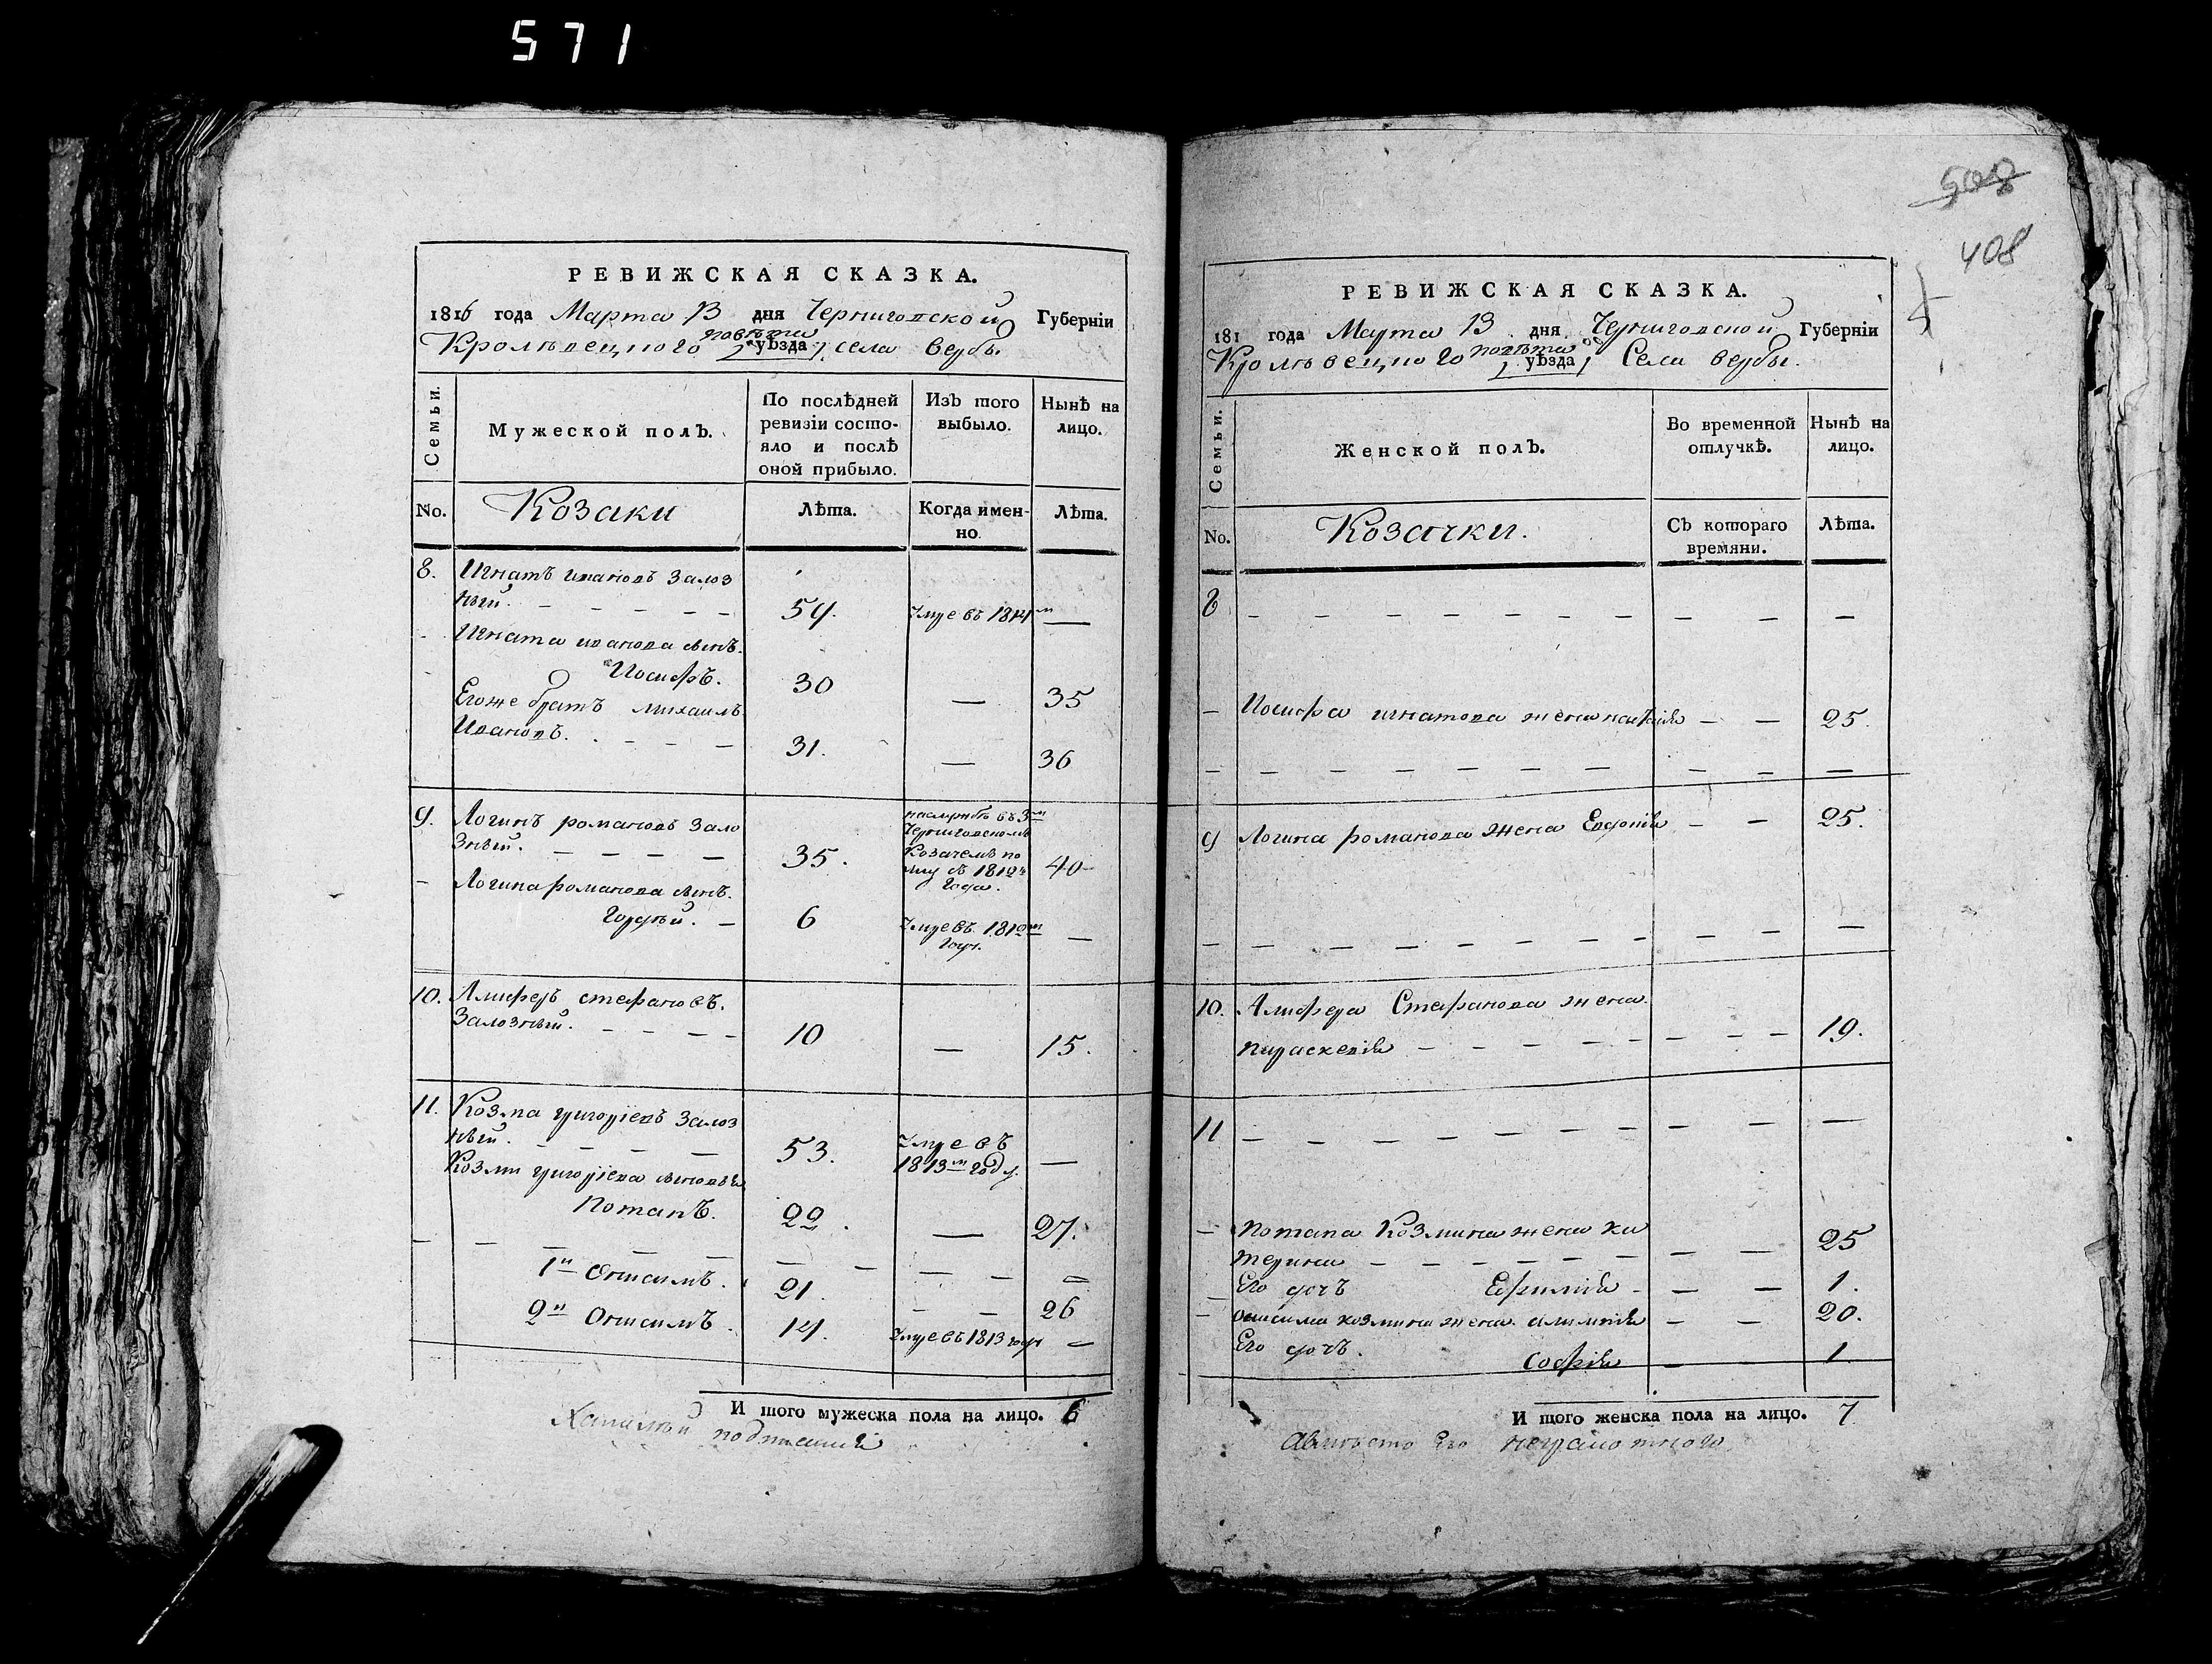 571
РЕВИЖСКАЯ СКАЗКА.
1816 года Марта 13 дня Черниговской Губерніи
повѣта
Кролѣвецкого уѣзда села вербы
Семьи.
Мужеской полъ.
По послѣдней ревизіи состо-
яло и послѣ
оной прибыло.
Изъ того выбыло.
Нынѣ на лицо.
No.
Козаки
Лѣта.
Когда имен-
но.
Лѣта.
8. Игнатъ ивановъ Залоз
ный. 59. Умре въ 1814м —
Игната иванова сынъ
Иосифъ. 30 — 35
Егоже братъ михаилъ
Ивановъ. 31. — 36
9. Логинъ романовъ Зало
зный. 35. 40
въ 3м
Черниговскомъ
Козачемъ по
лку съ 1812
Года.
Логина романова сынъ
Гордѣй. 6 Умре въ 181 м —
году.
10. Алиферъ стефановъ.
Залозный. 10 — 15.
11. Козма григорiевъ Залоз
ный. 53. Умре въ
1813м году. —
Козми григорiева сыновья
Потапъ. 22. — 27.
1й Онисимъ. 21. — 26
2й Онисимъ. 14. Умре въ 1813 году —
И того мужеска пола на лицо. 6
508
408
РЕВИЖСКАЯ СКАЗКА.
181 года Марта 13 дня Черниговской Губерніи
повѣта
Кролѣвецкого уѣзда Села вербы.
Семьи.
Женской полъ.
Во временной
отлучкѣ.
Нынѣ на
лицо.
No.
Козачки.
Съ котораго
времяни.
Лѣта.
8 — — —
Иосифа игнатова жена — — 25.
— — —
9 Логина романова жена Евдокія — — 25.
— — —
10. Алифера Стефанова жена
параскевія — — 19.
11 — — —
потапа Козмина жена ка
терина — — 25
Его дочъ Ефимія — — 1.
онисима козмина жена — — 20.
Его дочъ. Софія — 1
И того женска пола на лицо. 7
Его неграмотного